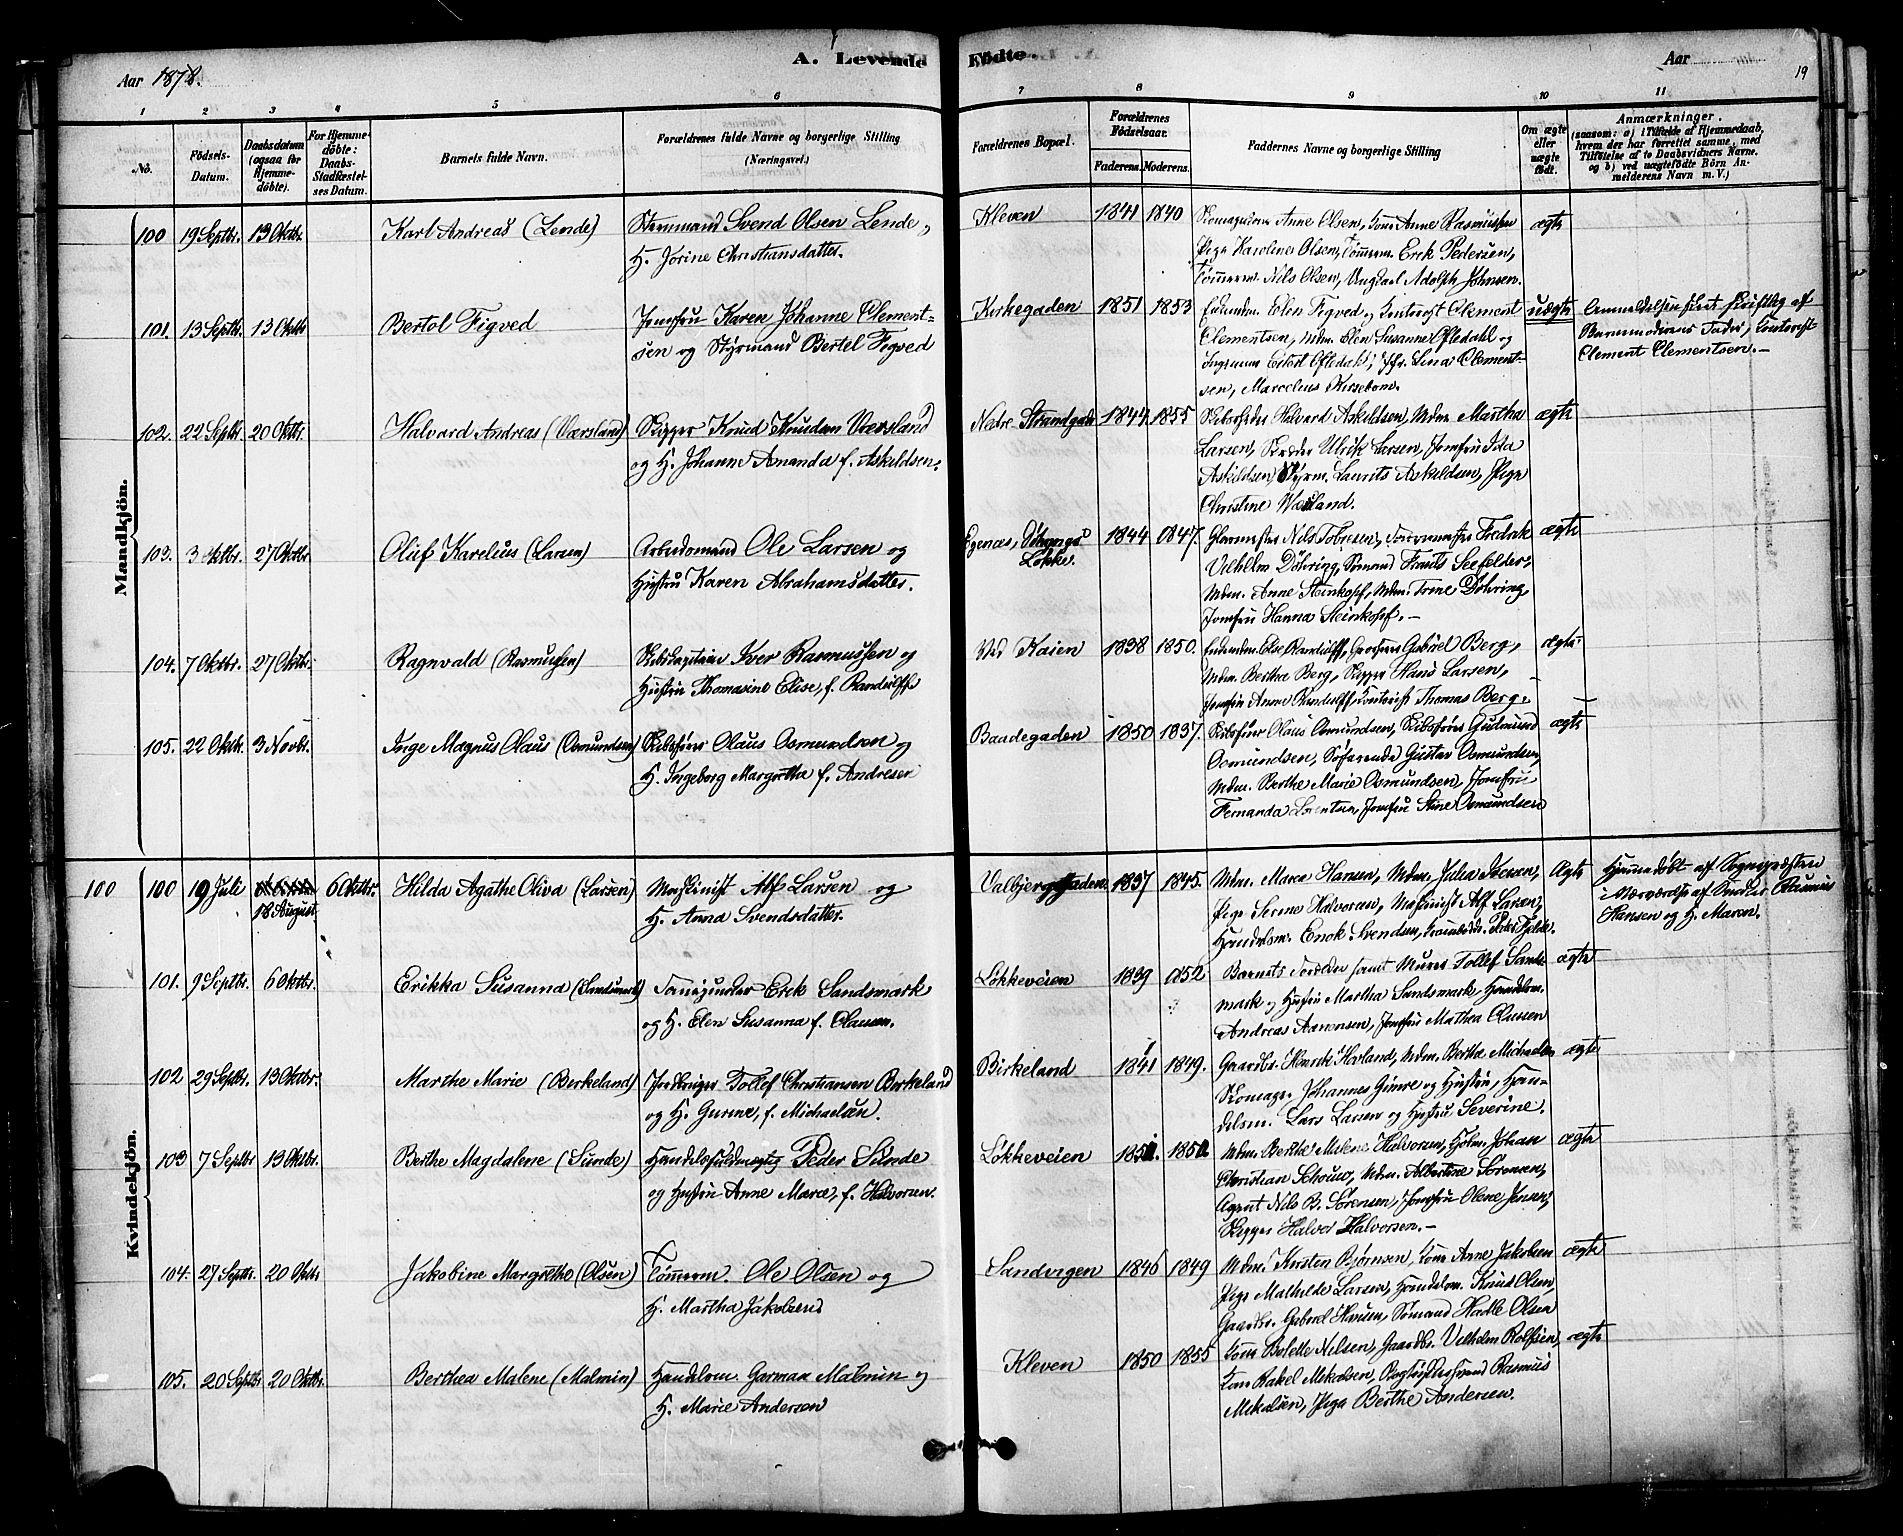 Aar 1878.
A. Levende
Fødte.
Aar
19
1 2 3 4 5 6 7 8 9 10 11
No.
Fødsels-Datum.
Daabsdatum (ogsaa for Hjemme-døbte).
For Hjemme-døbte: Daabs-Stadfæstel-ses Datum.
Barnets fulde Navn.
Forældrenes fulde Navne og borgerlige Stilling (Næringsvei.)
Forældrenes Bopæl.
Forældrenes Fødselsaar.
Faderens. Moderens.
Faddernes Navne og borgerlige Stilling
Om ægte eller uægte født.
Anmærkninger.
(saasom: a) i Tilfælde af Hjemmedaab, hvem der har forrettet samme, med Tilføielse af to Daabsvidners Navne. og b) ved uægtefødte Børn An-melderens Navn m. V.)
Mandkjön.
100 19 Septbr. 13 Oktbr. Karl Andreas (Lende)
Svend Olsen Lende,
H. Jorine Christiansdatter.
Kleven 1841 1840
Anne Olsen, Kone Anne Rasmussen
Pige Karoline Olsen, Tømmerm. Erik Pedersen,
Tømmerm. Nils Olsen, Ungkarl Adolph Johnsen.
ægte
101. 13 Septbr. 13 Oktbr Bertol Figved
Jomfru Karen Johanne Clement-
sen og Styrmand Bertel Figved
Kirkegaden 1851 1853
Enkemdm. Elen Figved, Kontorist Clement
Clementsen, Mdm. Elen Susanne Ofledahl og
Jfr. Lina Clement-
sen, Marcelius Kirsebom.
uægte
Anmeldelsen skeet skriftlig af
Barnemoderens Fader, Kontorist
Clement Clementsen.-
102. 22 Septbr 20 Oktbr Halvard Andreas (Værsland)
Skipper Knud Knudsen Værsland
og H. Johanne Amanda f. Askildsen.
Nedre Strandgade 1844 1855
Halvard Askildsen, Mdm. Martha
Larsen, Skræder Ulrik Larsen, Jomfru Ida
Askildsen, Styrm. Laurits Askildsen, Pige
Christine Wæsland.
ægte
103. 3 Oktbr. 27 Oktbr Oluf Karelius (Larsen)
Arbeidsmand Ole Larsen og
Hustru Karen Abrahamsdatter.
Egenæs, Døhrings Løkke. 1844 1847.
Glarmester Nils Tobiesen, Fredrik
Vilhelm Döhring, Sømand Frants Seefelder,
Mdm. Anne Steinkopf, Mdm. Trine Döhring,
Jomfru Hanna Steinkopf.-
ægte
104. 7 Oktbr. 27 Oktbr. Ragnvald (Rasmussen)
Skibskaptein Iver Rasmussen og
Hustru Thomasine Elise, f. Randulff
Ved Kaien 1838 1850.
Enkemdm. Else Randulff, Gabriel Berg,
Mdm. Bertha Berg, Skipper Hans Larsen,
Jomfru Anne Randulff, Kontorist Thomas Berg.
ægte
105. 22 Oktbr. 3 Novbr. Inge Magnus Olaus (Osmundsen)
Skibsfører Olaus Osmundsen og
H. Ingeborg Margretha f. Andresen
Baadegaden 1850 1837.
Skibsfører Olaus Osmundsen, Skibsfører Gudmund
Osmundsen, Søfarende Gustav Osmundsen,
Mdm. Berthe Marie Osmundsen, Jomfru
Fernanda Lorentsen, Jomfru Stine Osmundsen
ægte
Kvindekjön.
100 100 19 Juli 18 August 6 Oktbr. Hilda Agathe Oliva (Larsen)
Maskinist Alf Larsen og
H. Anna Svendsdatter.
Valbjerggaden 1837 1845.
Mdm. Maren Hansen, Mdm. Julia Iversen,
Pige Serine Halvorsen, Maskinist Alf Larsen,
Handelsm. Enok Svendsen,
Ægte
Hjemmedøbt af Sognepræsten
i Nærværelse af Snedker Rasmus
Hansen og H. Maren.
101. 9 Septbr. 6 Oktbr. Erikka Susanna (Sandsmark)
Erik Sandsmark
og H. Elen Susanna f. Clausen.
Løkkeveien 1839 1852.
Barnets Forældre samt Murer Tollef Sands-
mark og Hustru Martha Sandsmark, Handelsm.
Andreas Aanensen, Jomfru Mathea Clausen
ægte
102 29 Septbr. 13 Oktbr. Marthe Marie (Berkeland)
Jordbruger Tollef Christiansen Berkeland
og H. Gurine, f. Michaelsen.
Birkeland 1841 1849.
Gaardbr. Henrik Havland, Mdm. Bertha Michaelsen
Skomager Johannes Gimre og Hustru, Han-
delsm. Lars Larsen og Hustru Severine.
ægte
103 7 Septbr 13 Oktbr. Berthe Magdalene (Sunde)
Handelsfuldmægtig Peder Sunde
og Hustru Anne Marie, f. Halvorsen.
Løkkeveien 1851. 1851
Mdm. Berthe Malene Halvorsen, Johan
Christian Schouw, Mdm. Albertine Sørensen,
Agent Nils B. Sørensen, Jomfru Olene Jensen,
Skipper Halvor Halvorsen.-
ægte
104. 27 Septbr. 20 Oktbr Jakobine Margrethe (Olsen)
Tømmerm. Ole Olsen og
H. Martha Jakobsen
Sandvigen 1846 1849
Mdm. Kirsten Bjørnsen, Kone Anne Jakobsen
Pige Mathilde Larsen, Handelsm. Knut Olsen,
Gaardbr. Gabriel Hansen, Sømand Hadle Olsen
ægte
105. 20 Septbr 20 Oktbr. Berthea Malene (Malmin)
Handelsm. Gorman Malmin og
H. Marie Andersen
Kleven 1850 1855
Kone Bolette Nilsen, Gaardbr. Vilhelm Rolfsen,
Kone Rakel Mikalsen, Rasmus
Mikalsen, Pige Berthe Andersen.
ægte